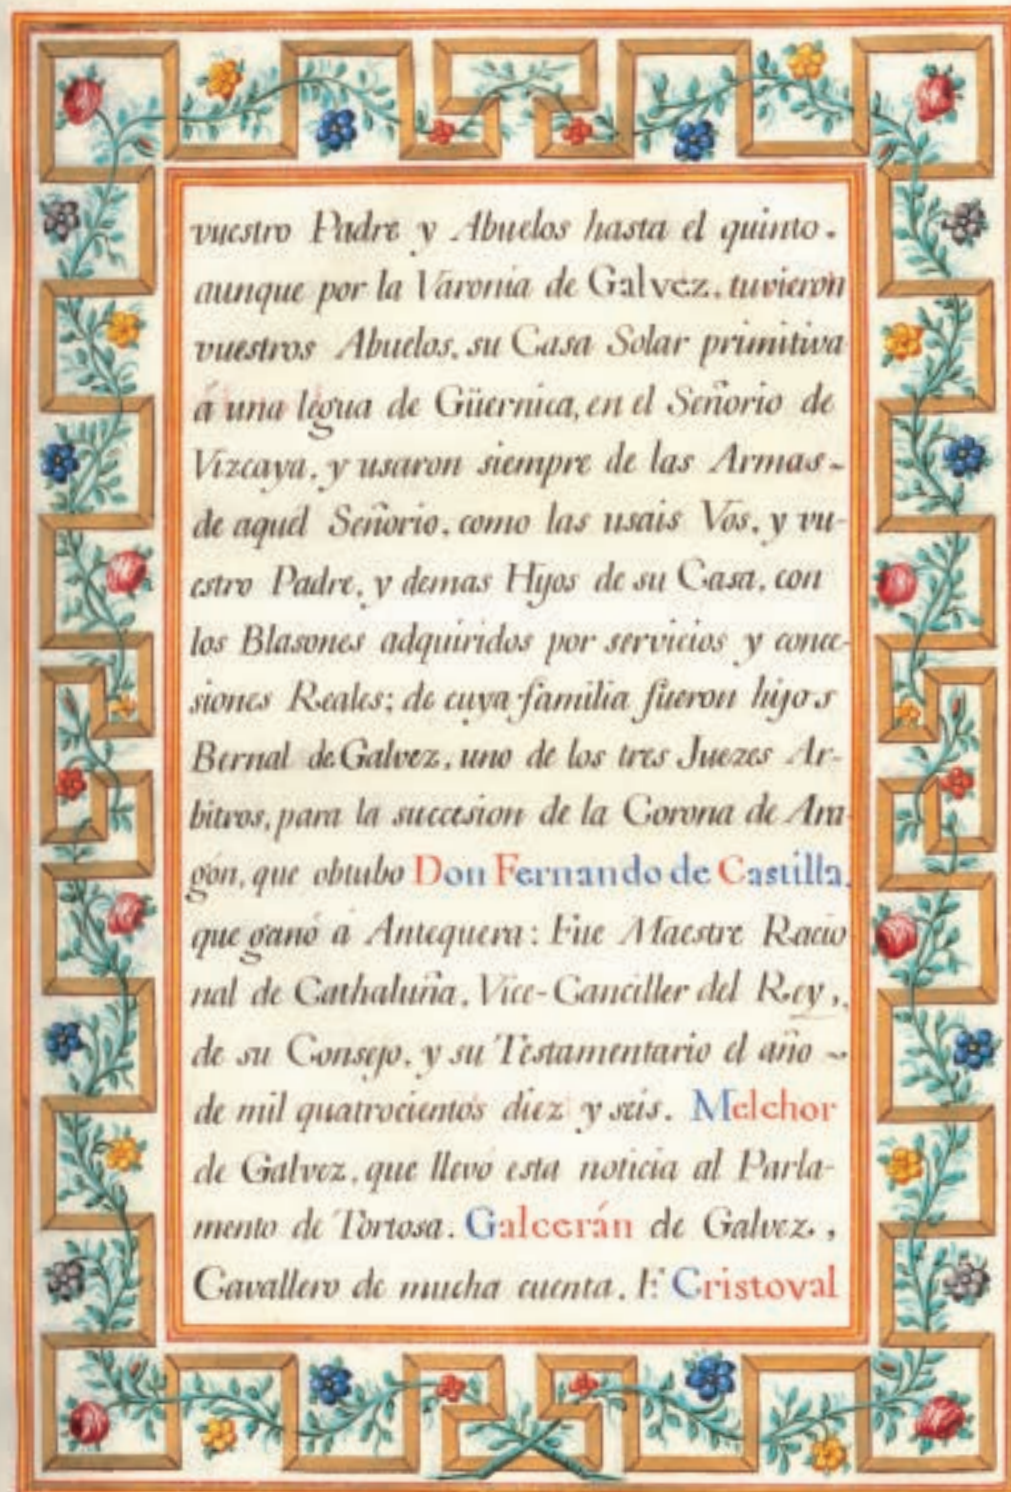 vuestro Padre y Abuelos hasta el quinto.
aunque por la Varonia de Galvez, tuvieron
vuestros Abuelos, su Casa Solar primitiva
á una legua de Güernica, en el Señorio de
Vizcaya, y usaron siempre de las Armas-
de aquel Señorio, como las usais Vos, y vu-
estro Padre, y demas Hijos de su Casa, con
los Blasones adquiridos por servicios y conce-
siones Reales; de cuya familia fueron hijos
Bernal de Galvez, uno de los tres Juezes Ar-
bitros, para la succesion de la Corona de Ara
gón, que obtubo Don Fernando de Castilla,
que ganó á Antequera: Fue Maestre Racio
nal de Cathaluña, Vice-Canciller del Rey,
de su Consejo, y su Testamentario el año ~
de mil quatrocientos diez y seis. Melchor
de Galvez, que llevó esta noticia al Parla-
mento de Tortosa. Galcerán de Galvez,
Cavallero de mucha cuenta. F. Cristoval